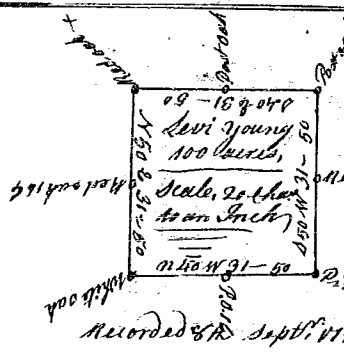 Red oak +
Post oak
S 40 E 31 - 50
Levi Young
100 acres,
Scale, 20 chas
to an Inch
N 50 E 31 - 50
Red oak
S 50 W 31 - 50
N 40 W 31 - 50
White oak
Recorded 8th Septr